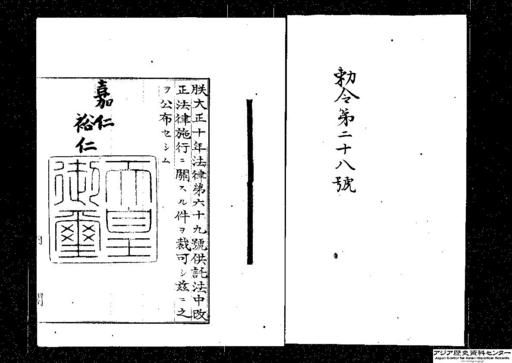 勅令第二十八號
朕大正十年法律第六十九號供託法中改
正法律施行ニ關スル件ヲ裁可シ茲ニ之
ヲ公布セシム
嘉仁
裕仁
天皇
御璽
アジア歴史資料センター
Japan Center for Asian Historical Records